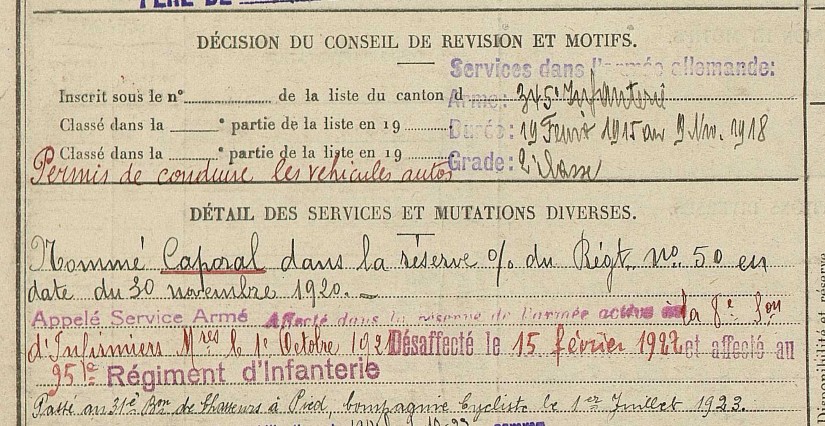 PÈRE DE
DÉCISION DU CONSEIL DE REVISION ET MOTIFS.
Services dans l'armée allemande:
Inscrit sous le n° de la liste du canton d
Arme: 345e Infanterie
Classé dans la e partie de la liste en 19
Durée: 19 Fevr 1915 au 9 Nov. 1918
Classé dans la e partie de la liste en 19
Grade: 2e classe
Permis de conduire les vehicules autos
DÉTAIL DES SERVICES ET MUTATIONS DIVERSES.
Nommé Caporal dans la réserve o/o du Régt. no. 50 en
date du 30 novembre 1920.
Appelé Service Armé Affecté dans la réserve de l'armée active à la 8e Son
d'Infirmiers Mres le 1er Octobre 1921 Désaffecté le 15 février 1922 et affecté au
95 1e Régiment d'Infanterie
Passé au 31e Bon de Chasseurs à Pied, compagnie Cycliste le 1er Juillet 1923.